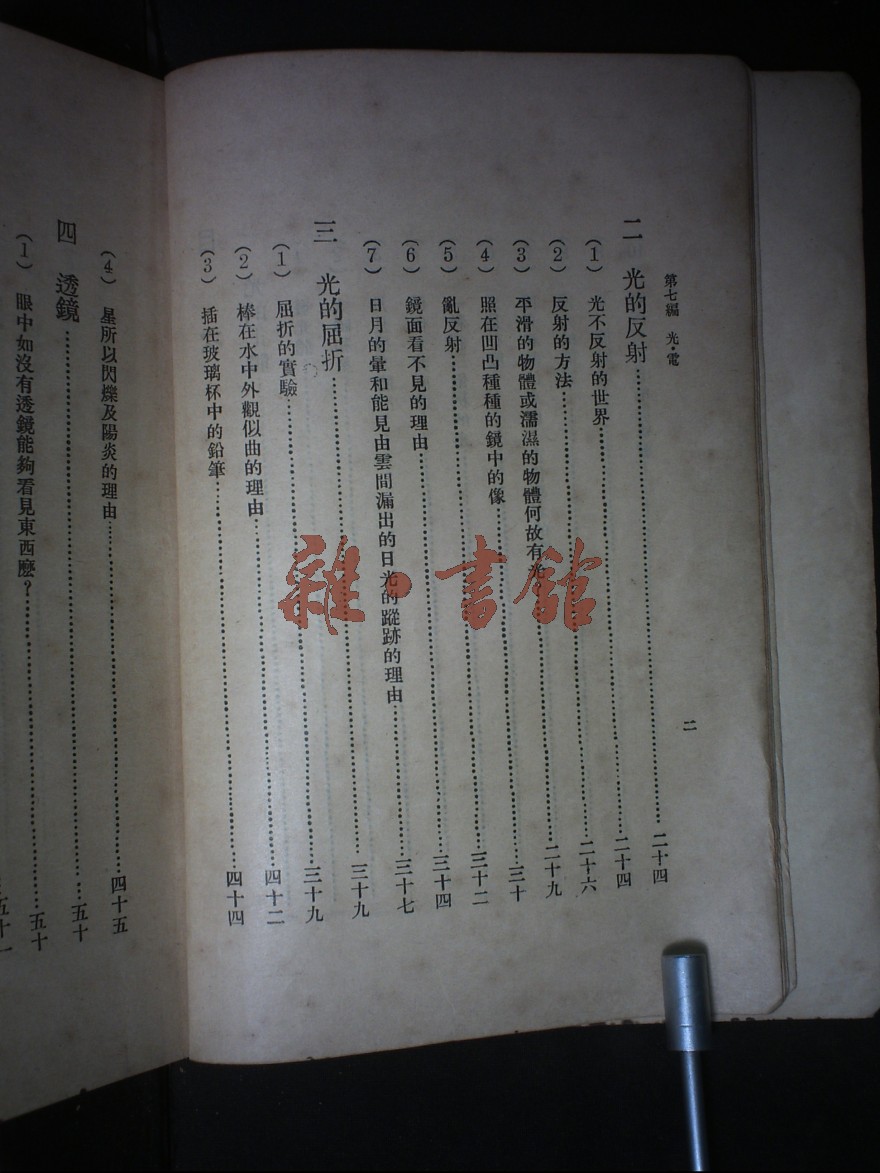 第七編　光・電　二
二　光的反射……二十四
(1)　光不反射的世界……二十四
(2)　反射的方法……二十六
(3)　平滑的物體或濡濕的物體何故有光……二十九
(4)　照在凹凸種種的鏡中的像……三十
(5)　亂反射……三十二
(6)　鏡面看不見的理由……三十四
(7)　日月的暈和能見由雲間漏出的日光的蹤跡的理由……三十七
三　光的屈折……三十九
(1)　屈折的實驗……三十九
(2)　棒在水中外觀似曲的理由……四十二
(3)　插在玻璃杯中的鉛筆……四十四
(4)　星所以閃爍及陽炎的理由……四十五
四　透鏡……五十
(1)　眼中如沒有透鏡能夠看見東西麽？……五十
五十一
雜・書館